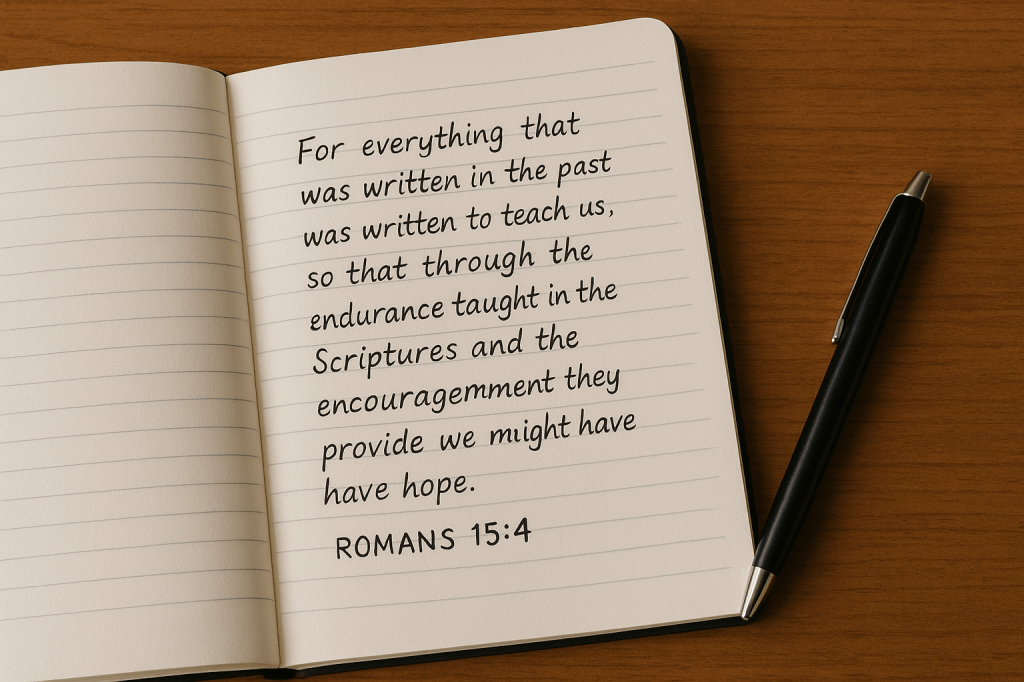 For everything that
was written in the past
was written to teach us,
so that through the
endurance taught in the
Scriptures and the
encouragemment they
provide we might have
have hope.
ROMANS 15:4